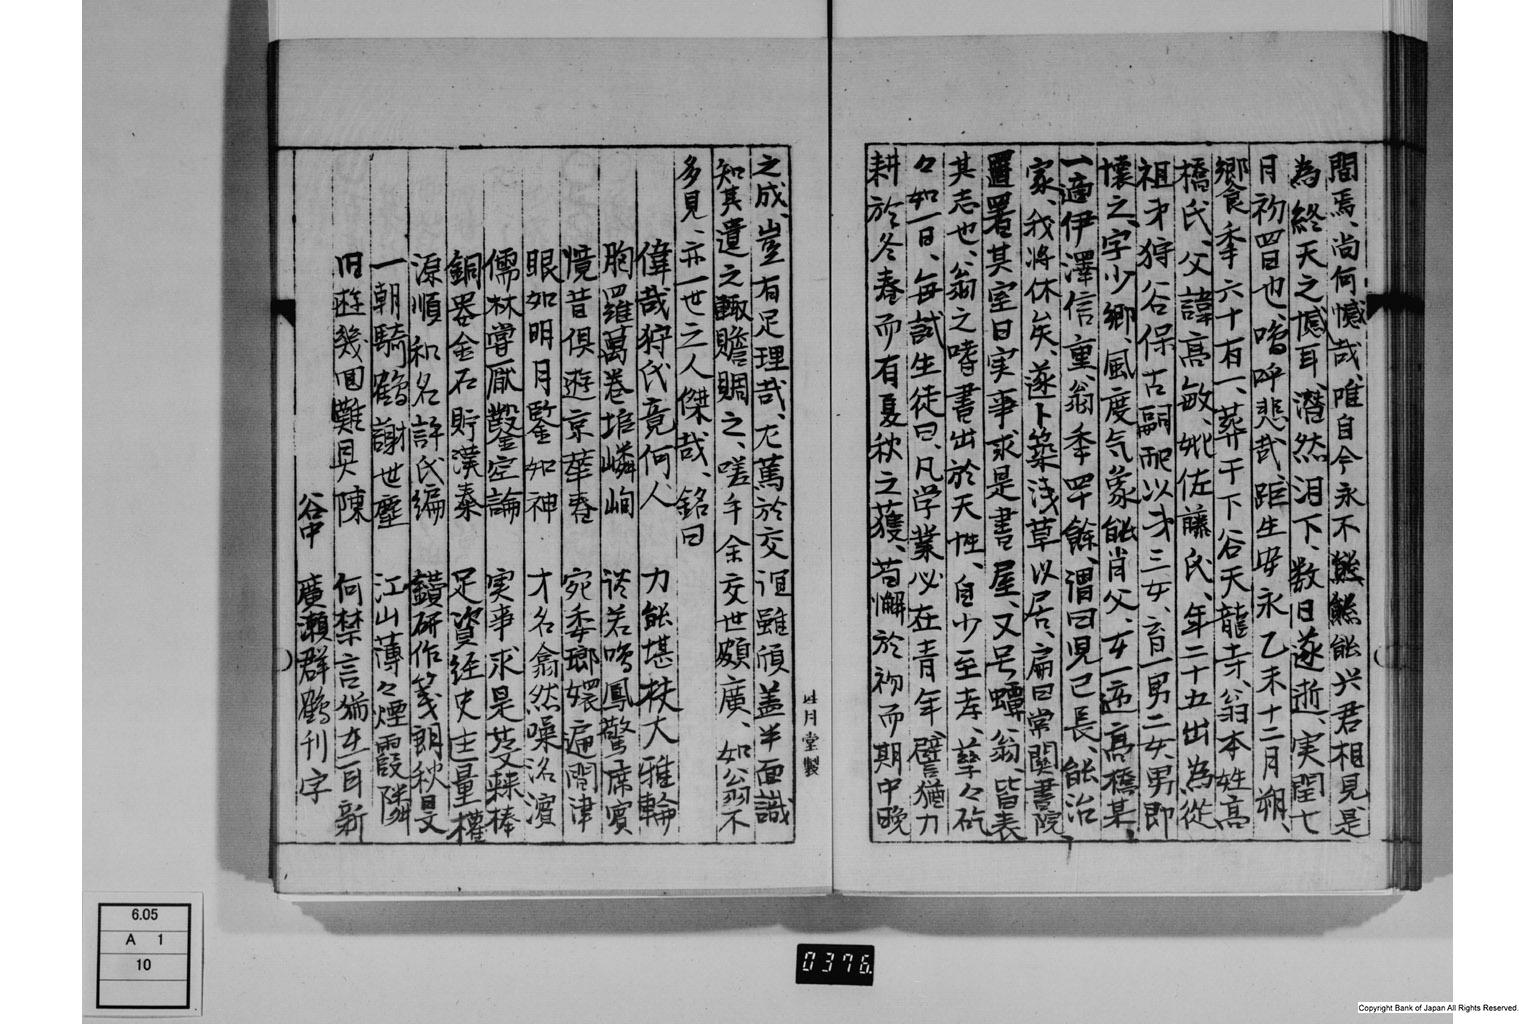 間焉、尚何憾哉、唯自今永不能与君相見、是
為終天之憾耳、潜然泪下、数日遂逝、実閏七
月初四日也、嗚呼悲哉、距生安永乙未十二月朔、
享年六十有一、葬于下谷天龍寺、翁本姓高
橋氏、父諱高敏、妣佐藤氏、年二十五出為従
祖才狩谷保古嗣、配以才三女、育一男二女、男即
懐之、字少卿、風度气象能肖父、女一適高橋某、
一適伊澤信重、翁季四十餘、謂曰児已長、能治
家、我将休矣、遂卜築浅草以居、扁曰常関書院
置其室曰実事求是書屋、又号蟫翁、皆表
其志也、翁之嗜書出於天性、自少至孝、孳々矻
々如一日、毎試生徒曰、凡学業必在青年、譬猶力
耕於冬春而有夏秋之獲、苟懈於初而期中晚
之成、豈有足理哉、尤篤於交誼、雖傾蓋半面識
知其遺之、輙贍賙之、嗟乎余交世頗廣、如翁不
多見、亦一世之人傑哉、銘曰
偉哉狩氏竟何人 力能堪扶大雅輪
胸羅萬巻堆嶙峋 談若鳴鳳驚席賓
憶昔倶遊京華春 宛委瑯嬛遍問津
眼如明月鑒如神 才名翕然噪洛濱
儒林嘗厭鑿空論 実事求是芟榛
銅器金石貯漢秦 足資経史主量權
源順和名詳氏編 讃研作箋朗秋旻
一朝騎鶴謝世塵 江山薄々煙霞隣
旧遊幾回難具陳 何禁言猶在耳新
谷中 廣瀬群鶴刊字
月堂製
6.05
A 1
10
0376.
Copyright Bank of Japan All Rights Reserved.